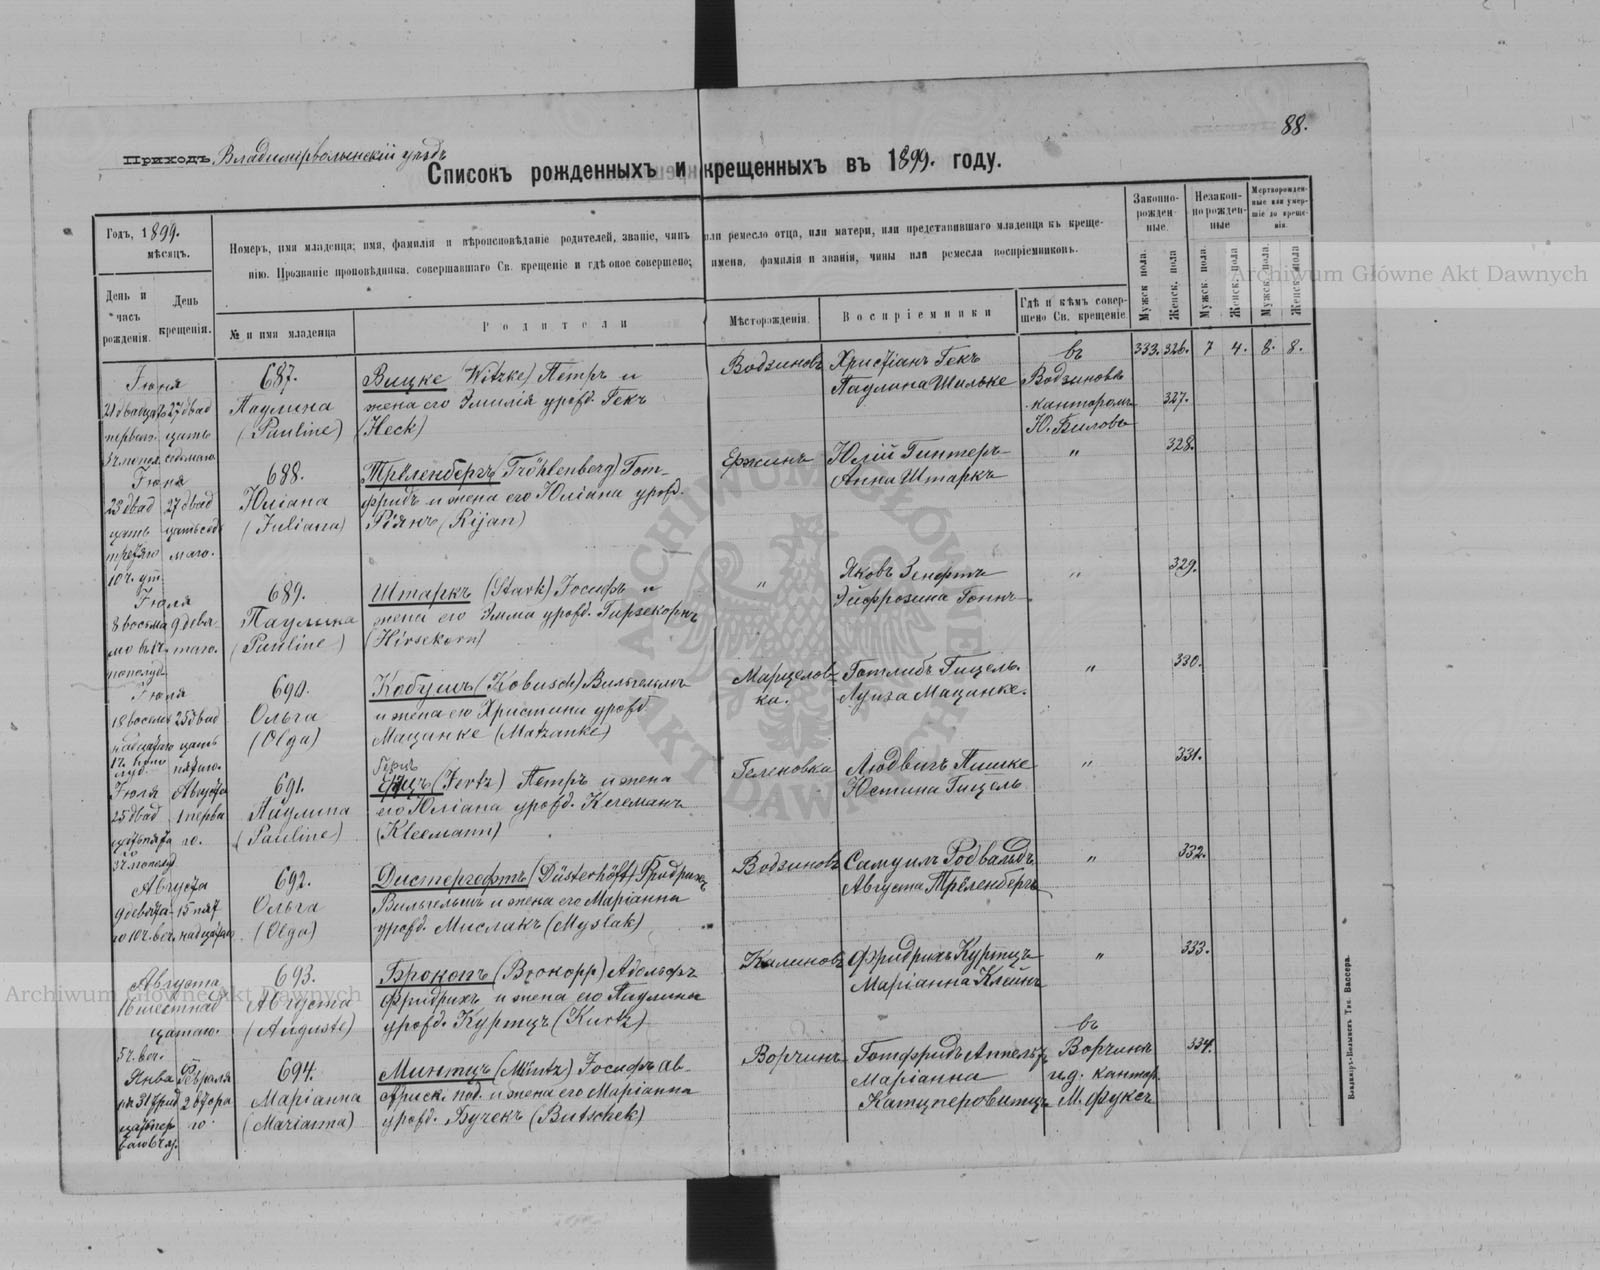 88.
Приходъ Владимірволынскій уѣздъ
Списокъ рожденныхъ и крещенныхъ въ 1899. году.
Годъ, 1899.
мѣсяцъ.
День и часъ рожденія.
День крещенія.
Номеръ, имя младенца; имя, фамилія и вѣроисповѣданіе родителей, званіе, чинъ или ремесло отца, или матери, или представившаго младенца къ креще-
нію. Прозваніе проповѣдника, совершавшаго Св. крещеніе и гдѣ оное совершено; имена, фамилія и званія, чины или ремесла воспріемниковъ.
№ и имя младенца
Родители
Мѣсторожденія.
Воспріемники
Гдѣ и кѣмъ совер-
шено Св. крещеніе
Законно-
рожден-
ные
Незакон-
но рожден-
ные
Мертворожден-
ные или умер-
шіе до креще-
нія.
Мужск. пола.
Женск. пола
Мужск. пола.
Женск. пола
Мужск. пола.
Женск. пола
333. 326. 7 4. 8. 8.
Іюня
21 двадцать 27 двад
перваго цать
687.
Паулина
(Pauline)
Вицке (Witzke) Петръ и
жена его Эмилія урожд. Гекъ
(Heck)
Водзиновъ
Христіанъ Гекъ
Паулина Шильке
въ
Водзиновѣ
канторомъ
Ю. Биловъ
327.
Іюня
23 двад 27 двад
цать
третяго маго.
10 ч. ут.
688.
Юліана
(Juliana)
Трёленбергъ (Tröhlenberg) Гот-
фридъ и жена его Юліана урожд.
Ріянъ (Rijan)
Ержинъ
Юлій Гинтеръ
Анна Штаркъ
"
328.
Іюля
8 восьма 9 девя-
таго.
689.
Паулина
(Pauline)
Штаркъ (Stark) Іосифъ и
жена его Эмма урожд. Гирзекорнъ
(Hirsekorn)
"
Яковъ Зенфтъ
Эйфрозина Гоннъ
"
329.
Іюля
18 восем 25 двад
надцатаго цать
пятаго.
690.
Ольга
(Olga)
Кобушъ (Kobusch) Вильгельмъ
и жена его Христина урожд.
Мацанке (Matzanke)
Марцелов-
ка.
Готлибъ Гицель.
Луиза Мацинке.
"
330.
Іюля Августа
25 двад 1 перва
го.
691.
Паулина
(Pauline)
Герцъ
(Jertz) Петръ и жена
его Юліана урожд. Клеманъ
(Kleemann)
Геленовка
Людвигъ Пишке
Юстина Гицель.
"
331.
Августа
9 девята- 15 пят
го 10 ч. веч. надцатаго
692.
Ольга
(Olga)
Дистергефтъ (Düsterhöft) Фридрихъ
Вильгельмъ и жена его Маріанна
урожд. Мислакъ (Myslak)
Водзиновъ
Самуилъ Родвальдъ
Августа Трёленбергъ
"
332.
Августа
16 шестнад
цатаго.
5 ч. веч.
693.
Августа
(Auguste)
Брокопъ (Brokopp) Адольфъ
Фридрихъ и жена его Паулина
урожд. Куртцъ (Kurtz)
Калиновъ
Фридрихъ Куртцъ
Маріанна Клейнъ
"
333.
Янва Февраля
ря 31 трид 2 втора
го.
694.
Маріанна
(Marianna)
Минтцъ (Mintz) Іосифъ ав-
стрійск. под. и жена его Маріанна
урожд. Бучекъ (Butschek)
Ворчинъ
Готфридъ Аппельтъ
Маріанна
Катцперовитцъ
въ
Ворчинѣ
и.д. кантор.
М. Фуксъ
334.
Владимір-Волынскъ Тип. Вассера.
Archiwum Główne Akt Dawnych
Archiwum Główne Akt Dawnych
ARCHIWUM GŁÓWNE AKT DAWNYCH